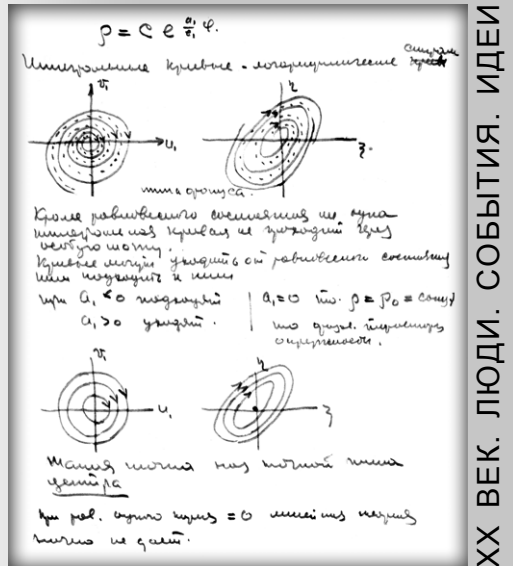 ρ = C e^{a₁/b₁ φ}.
Интегральные кривые - логарифмические спирали
v₁ η
u₁ ξ.
типа фокуса.
Кроме равновесного состояния ни одна
интегральная кривая не проходит через
особую точку.
Кривые могут уходить от равновесного состояния
или подходить к ним
при a₁ < 0 подходят | a₁ = 0 то. ρ = ρ₀ = const
a₁ > 0 уходят. | то
окружности.
v₁ η
u₁ ξ
точка точкой типа
центра
При = 0
точно не даёт.
XX ВЕК. ЛЮДИ. СОБЫТИЯ. ИДЕИ